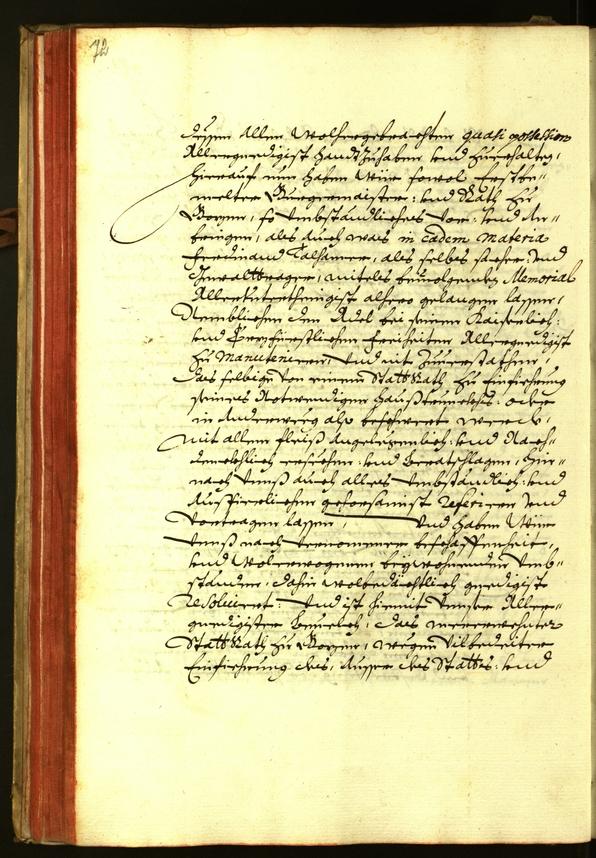 72
dessen allen Wolhergebrachten quasi possession
Allergnedigist handtzuhaben und zuerhalten,
Hierauf nun haben Wür sowol erster-
melter Burgermaister: und Rath zu
Bozen, so umbständliches vor: und An-
bringen, als auch was in eadem materia
Ferdinand als selbes und
Gwalttrager, mitels beuolgenden Memorial
Allerunterthenigist alhero gelangen lassen,
Nemblichen den Adel bei seinen Kaiserlich:
und Erzfürstlichen freiheiten Allergnedigist
zu Manuteniren, und nit zuuerstatten,
das selbige von einem StattRath zu Einfiehrung
seines Notwendigen Haus oder
in anderweeg also beschwert werde,
mit allem fleiß angelegenlich: und Nach-
denckhlich ersechen: und Berathschlagen, hier-
nach Unnß auch alles Umbständlich: und
Ausfierlichen gehorsamist referiren und
Vortragen lassen, Und haben Wür
Unnß nach vernomener beschaffenheit,
und Wolerwogenen beywohnenden Umb-
ständen, dahin wolbedächtlich gnedigist
resoluiert: Und ist hiemit Unser Aller-
gnedigister Beuelch, das mererwehnter
StattRath zu Bozen, wegen Vilbedeiter
Einfiehrung des, ausser des Stattes: und